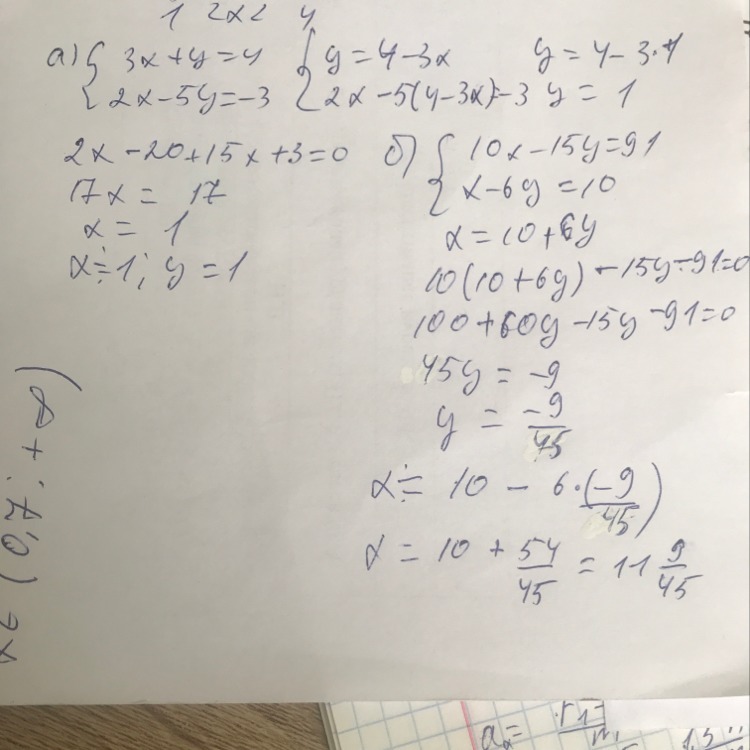 1 2x2 4
а) { 3x+y=4
2x-5y=-3
{ y=4-3x
2x-5(4-3x)=-3
y=4-3·1
y=1
2x-20+15x+3=0
17x=17
x=1
x=1; y=1
б) { 10x-15y=91
x-6y=10
x=10+6y
10(10+6y)-15y-91=0
100+60y-15y-91=0
45y=-9
y=-9/45
x=10-6·(-9/45)
x=10+54/45=11 9/45
(0,7; +∞)